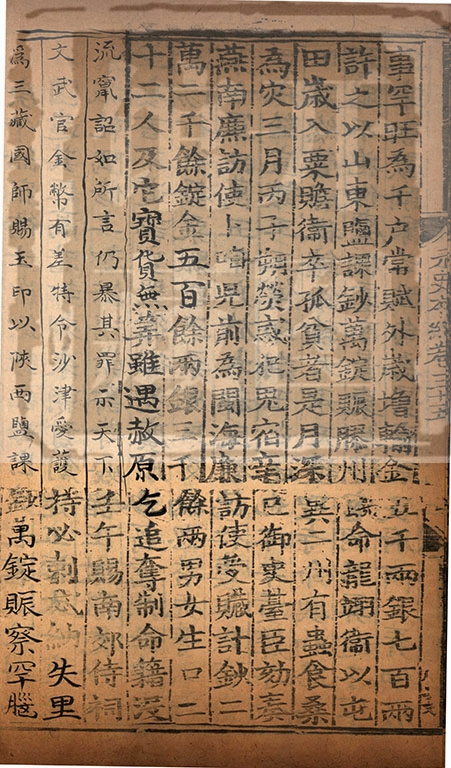 元史本紀卷三十五
事罕旺為千户常賦外歲增輸金五千兩銀七百兩
許之以山東鹽課鈔萬錠賑膠州命龍翊衛以屯
田歲入粟贍衛卒孤貧者是月深冀二州有蟲食桑
為灾三月丙子朔熒惑犯鬼宿辛巳御史臺臣劾奏
燕南廉訪使卜咱兒前為閩海廉訪使受贓計鈔二
萬二千餘錠金五百餘兩銀三千餘兩男女生口二
十二人及它寳貨無筭雖遇赦原乞追奪制命籍没
流竄詔如所言仍暴其罪示天下壬午賜南郊侍祠
文武官金幣有差特令沙津愛護持必剌忒納失里
為三藏國師賜玉印以陝西鹽課鈔萬錠賑察罕腦